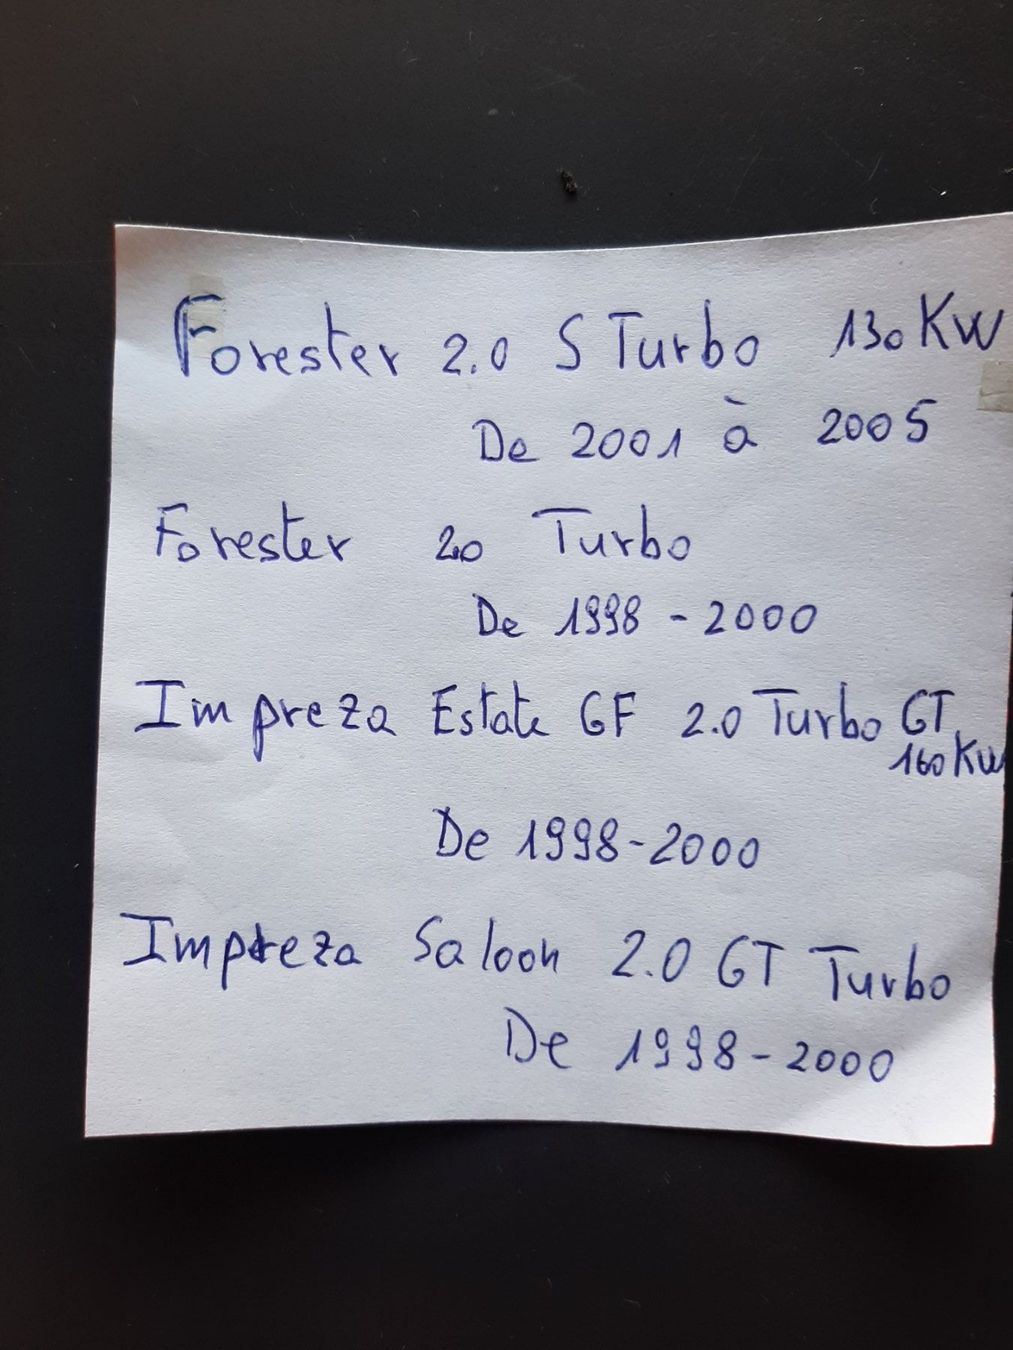 Forester 2.0 S Turbo 130 KW
De 2001 à 2005
Forester 2.0 Turbo
De 1998 - 2000
Impreza Estate GF 2.0 Turbo GT
160 KW
De 1998 - 2000
Impreza Saloon 2.0 GT Turbo
De 1998 - 2000